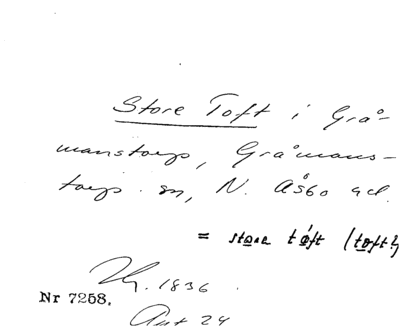 Store Toft i Grå-
manstorp, Gråmans-
torps sn, N. Åsbo hd.
= stora tóft (toft)
1836.
Nr 7258.
Akt 24